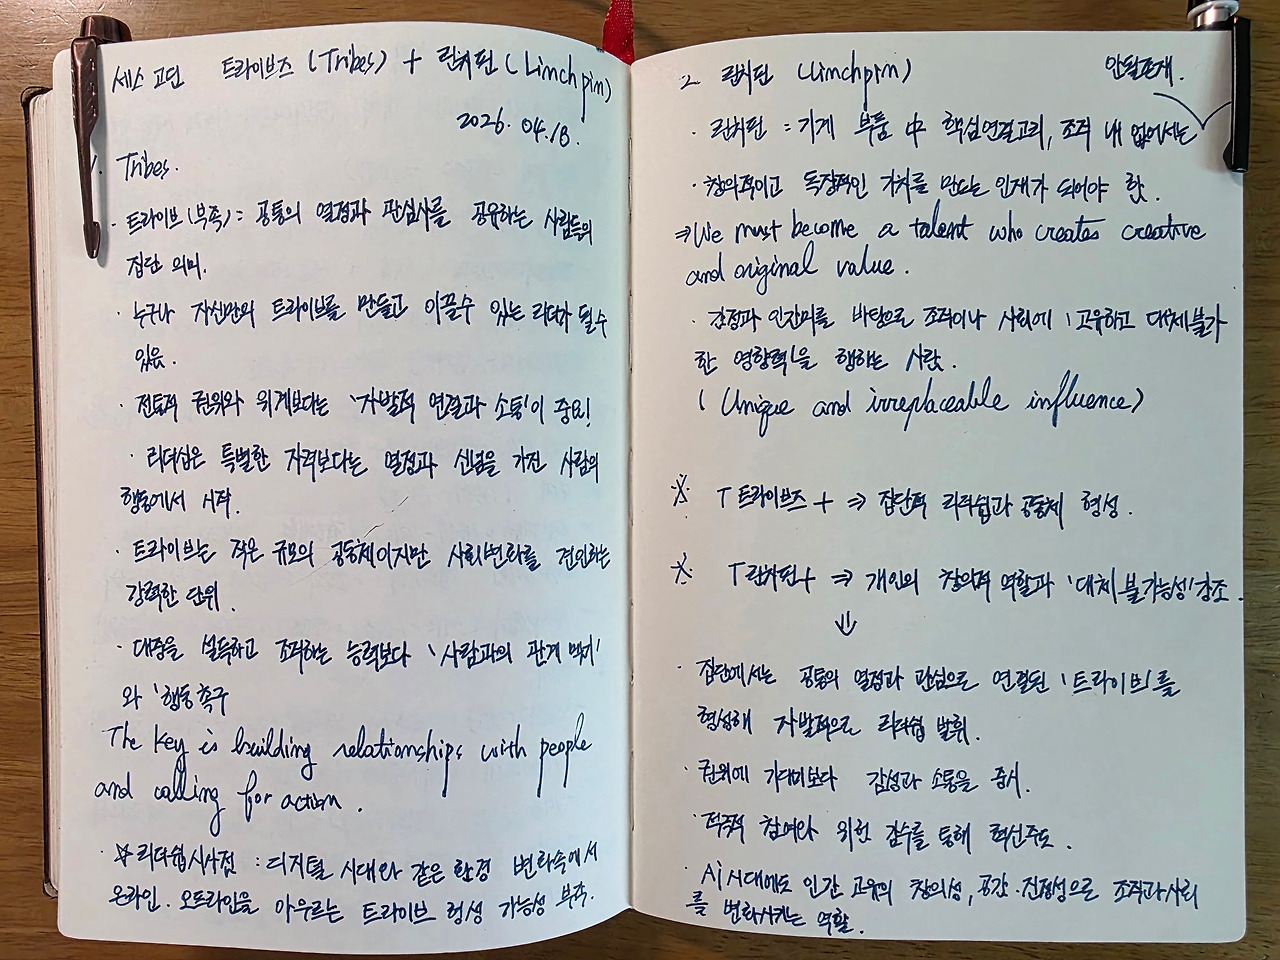 세스 고딘 트라이브즈 (Tribes) + 린치핀 (Linchpin)
2026. 04. 18.
1. Tribes.
· 트라이브(부족) : 공통의 열정과 관심사를 공유하는 사람들의
집단 의미.
· 누구나 자신만의 트라이브를 만들고 이끌 수 있는 리더가 될 수
있음.
· 전통적 권위와 위계보다는 '자발적 연결과 소통'이 중요!
· 리더십은 특별한 자격보다는 열정과 신념을 가진 사람의
행동에서 시작.
· 트라이브는 작은 규모의 공동체이지만 사회변화를 견인하는
강력한 단위.
· 대중을 설득하고 조직하는 능력보다 '사람과의 관계 맺기'
와 '행동 촉구
The key is building relationships with people
and calling for action.
☆ 리더쉽 시사점 : 디지털 시대와 같은 환경 변화속에서
온라인. 오프라인을 아우르는 트라이브 형성 가능성 부족.
2. 린치핀 (Linchpin)
안될 존재.
· 린치핀 = 기계 부품 中 핵심연결고리, 조직 내 없어서는
· 창의적이고 독창적인 가치를 만드는 인재가 되어야 함.
⇒ We must become a talent who creates creative
and original value.
· 감정과 인간미를 바탕으로 조직이나 사회에 '고유하고 대체불가
한 영향력'을 행하는 사람.
(Unique and irreplaceable influence)
※ 「트라이브즈」 ⇒ 집단적 리더쉽과 공동체 형성.
※ 「린치핀」 ⇒ 개인의 창의적 역할과 '대체 불가능성' 창조.
↓
· 집단에서는 공통의 열정과 관심으로 연결된 '트라이브'를
형성해 자발적으로 리더쉽 발휘.
· 권위에 기대기보다 감성과 소통을 중시.
· 적극적 참여와 위험 감수를 통해 혁신주도.
· Ai시대에도 인간 고유의 창의성, 공감·진정성으로 조직과 사회
를 변화시키는 역할.